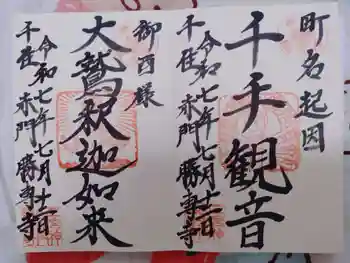 町名起因
千手観音
令和七年七月十一日
千住 赤門 勝専寺
御酉様
大鷲釈迦如来
令和七年七月十一日
千住 赤門 勝専寺